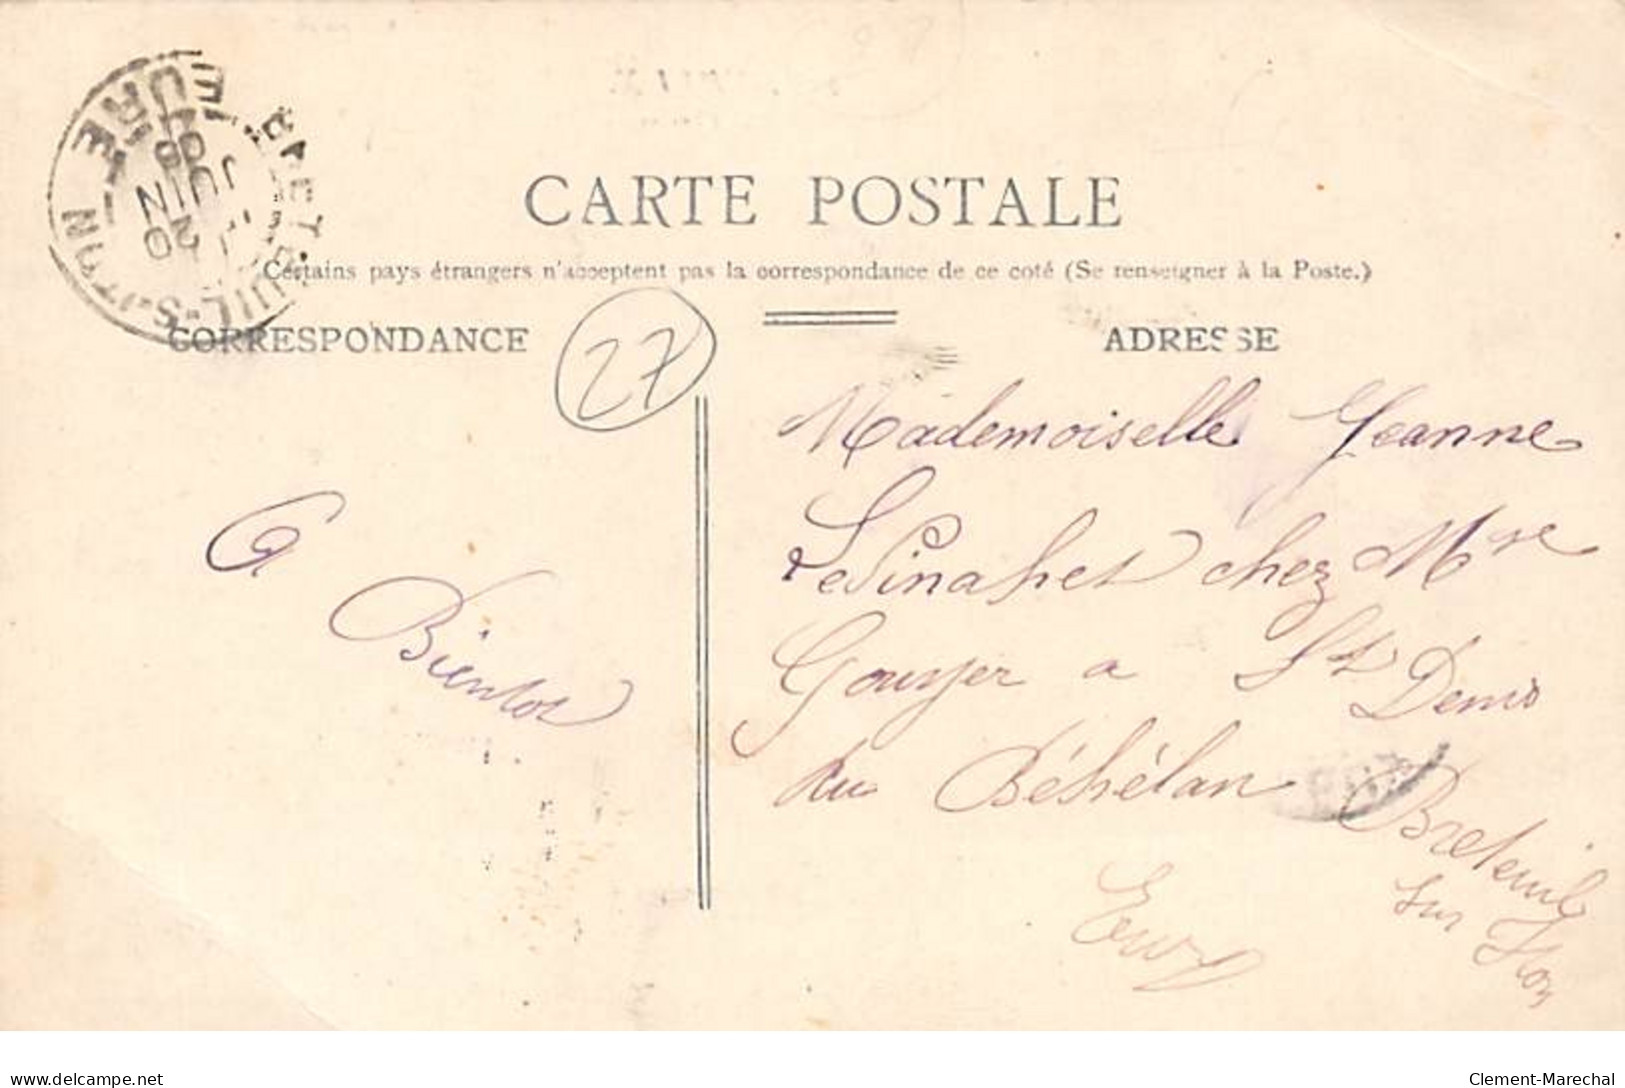 BRETEUIL-S-ITON
20
JUIN
08
EURE
CARTE POSTALE
Certains pays étrangers n'acceptent pas la correspondance de ce coté (Se renseigner à la Poste.)
CORRESPONDANCE
27
ADRESSE
A
Bientot
Mademoiselle Jeanne
chez Mme
a St Denis
du Béhélan
Breteuil
sur Iton
Eure
delcampe.net
Clement-Marechal